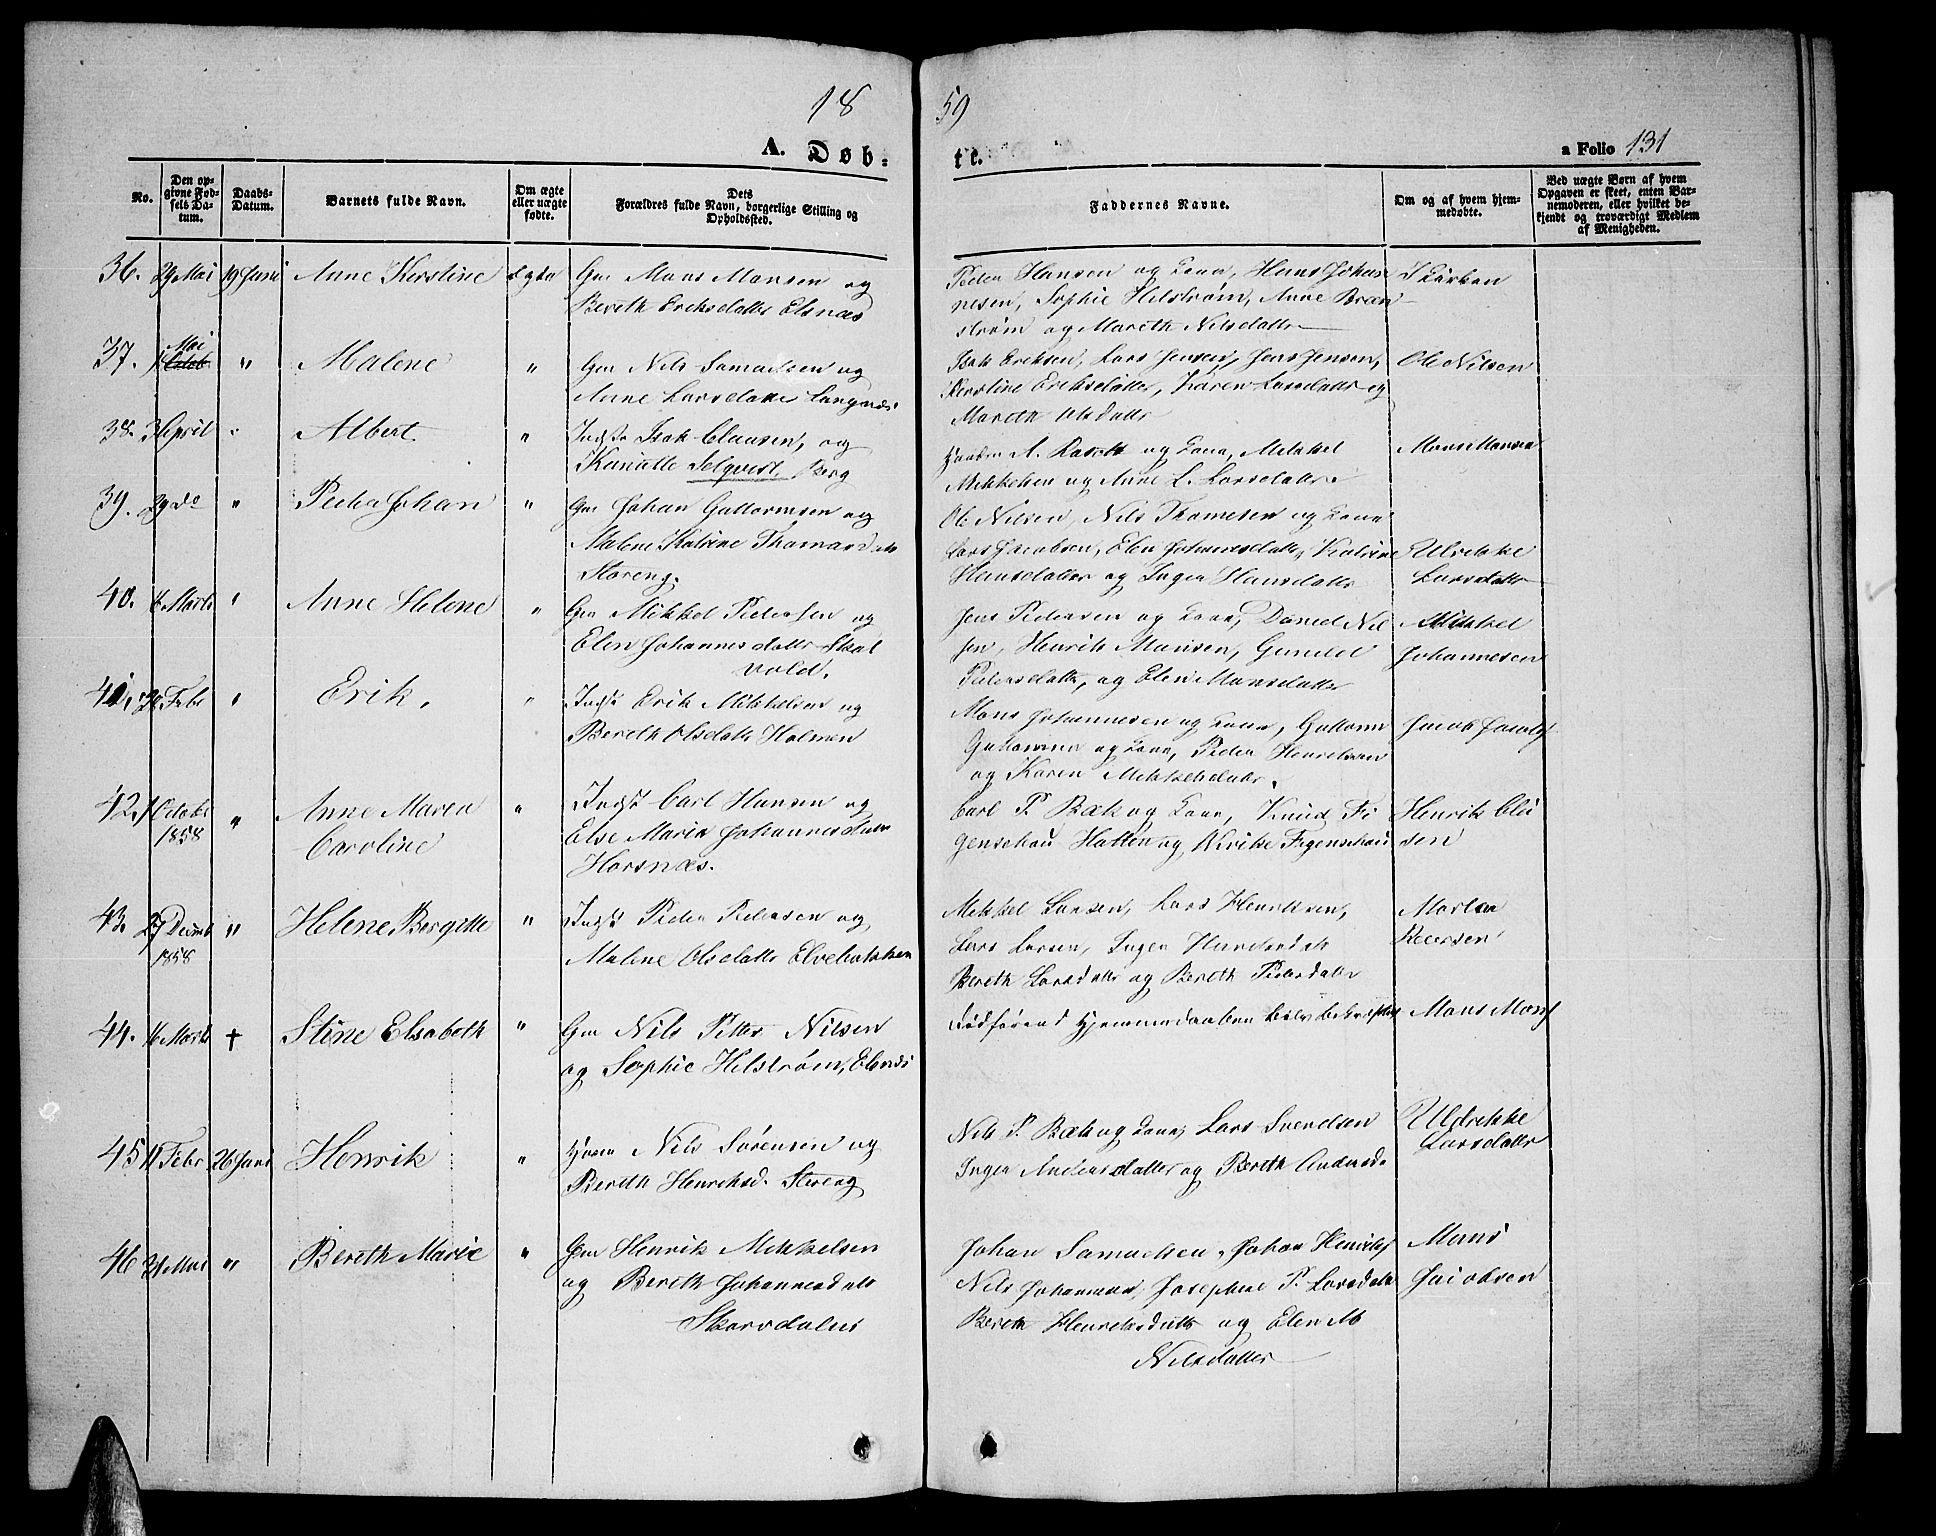 18 59
A. Døb- te.
a Folio 131
No.
Den opgivne Fødsels Datum.
Daabs-Datum.
Barnets fulde Navn.
Om ægte eller uægte fødte.
Dets Forældres fulde Navn, borgerlige Stilling og Opholdssted.
Faddernes Navne.
Om og af hvem hjemmedøbte.
Ved uægte Børn af hvem Opgaven er skeet, enten Barnemoderen, eller hvilket bekjendt og troværdigt Medlem af Menigheden.
36. 29 Mai 19 Juni Anne Kirstine ægte Gm Mons Monsen og
Bereth Eriksdatter Elsnæs
Peder Hansen og Kone, Hans Johan
nesen, Sophie Hilstrøm, Anne Bræn
strøm og Mareth Nilsdatter
I Kirken
37. Mai " Malene " Gm Nils Samuelsen og
Anne Larsdatter Langnæs
Isak Eriksen, Lars Jensen, Jens Jensen,
Kirstine Eriksdatter, Karen Larsdatter og
Mareth Olsdatter
Ole Nilsen
38. April Albert. " Indst Isak Clausen, og
Selqvist, Berg
og Kone, Mikkel
Mikkelsen og Anne L. Larsdatter
Mons Monsen
39. 29 do " Peder Johan " Gm Johan Guttormsen og
Malene Katrine Thomasdatt
Storeng.
Ole Nilsen, Nils Thomesen og Kone
Lars Jacobsen, Elen Johannesdatter, Katrine
Hansdatter og Inger Hansdatter
Ulrikke
Larsdatter
40. 6 Marts " Anne Helene " Gm Mikkel Pedersen og
Elen Johannesdatter Skol
vold.
Jens Pedersen og Kone, Daniel Nil
sen, Henrik Monsen, Gunild
Pedersdatter, og Elen Monsdatter
Mikkel
Johannesen
41. Febr " Erik. " Indst Erik Mikkelsen og
Bereth Olsdatter Holmen
Mons Johannesen og Kone, Guttorm
Guttormsen og Kone, Peder Henriksen
og Karen Mikkelsdatter.
Jacob
42. October 1858 " Anne Maren
Caroline " Indst Carl Hansen og
Else Maria Johannesdatter
Horsnæs.
Carl P. Bæk og Kone, Knud Fi
genschou Hatten og Figenschou
Henrik Cla
sen
43. 27 Decemb 1858 " Helene Bergitte " Indst Peder Pedersen og
Malene Olsdatter Elvebakken
Mikkel Larsen, Lars Henriksen,
Lars Larsen, Inger
Bereth Larsdatter og Bereth Pedersdatter
Morten
44. 16 Marts † Stine Elsabeth " Gm Nils Petter Nilsen
og Sophie Hilstrøm, Elsnæs
Mons Mons
45. 11 Febr 26 Juni Henrik " Nils Sørensen og
Bereth Henriksd. Storeng
Nils P. Bæk og Kone, Lars Svendsen
Inger Andersdatter og Bereth Andersd
Uldrikke
Larsdatter
46. Mai " Bereth Marie " Gm Henrik Mikkelsen
og Bereth Johannesdatt
Skorvdalen
Johan Samuelsen, Johan
Nils Johannesen, Josephine P. Larsdatter
Bereth Henriksdatter og Elen M
Nilsdatter
Mons
Jacobsen